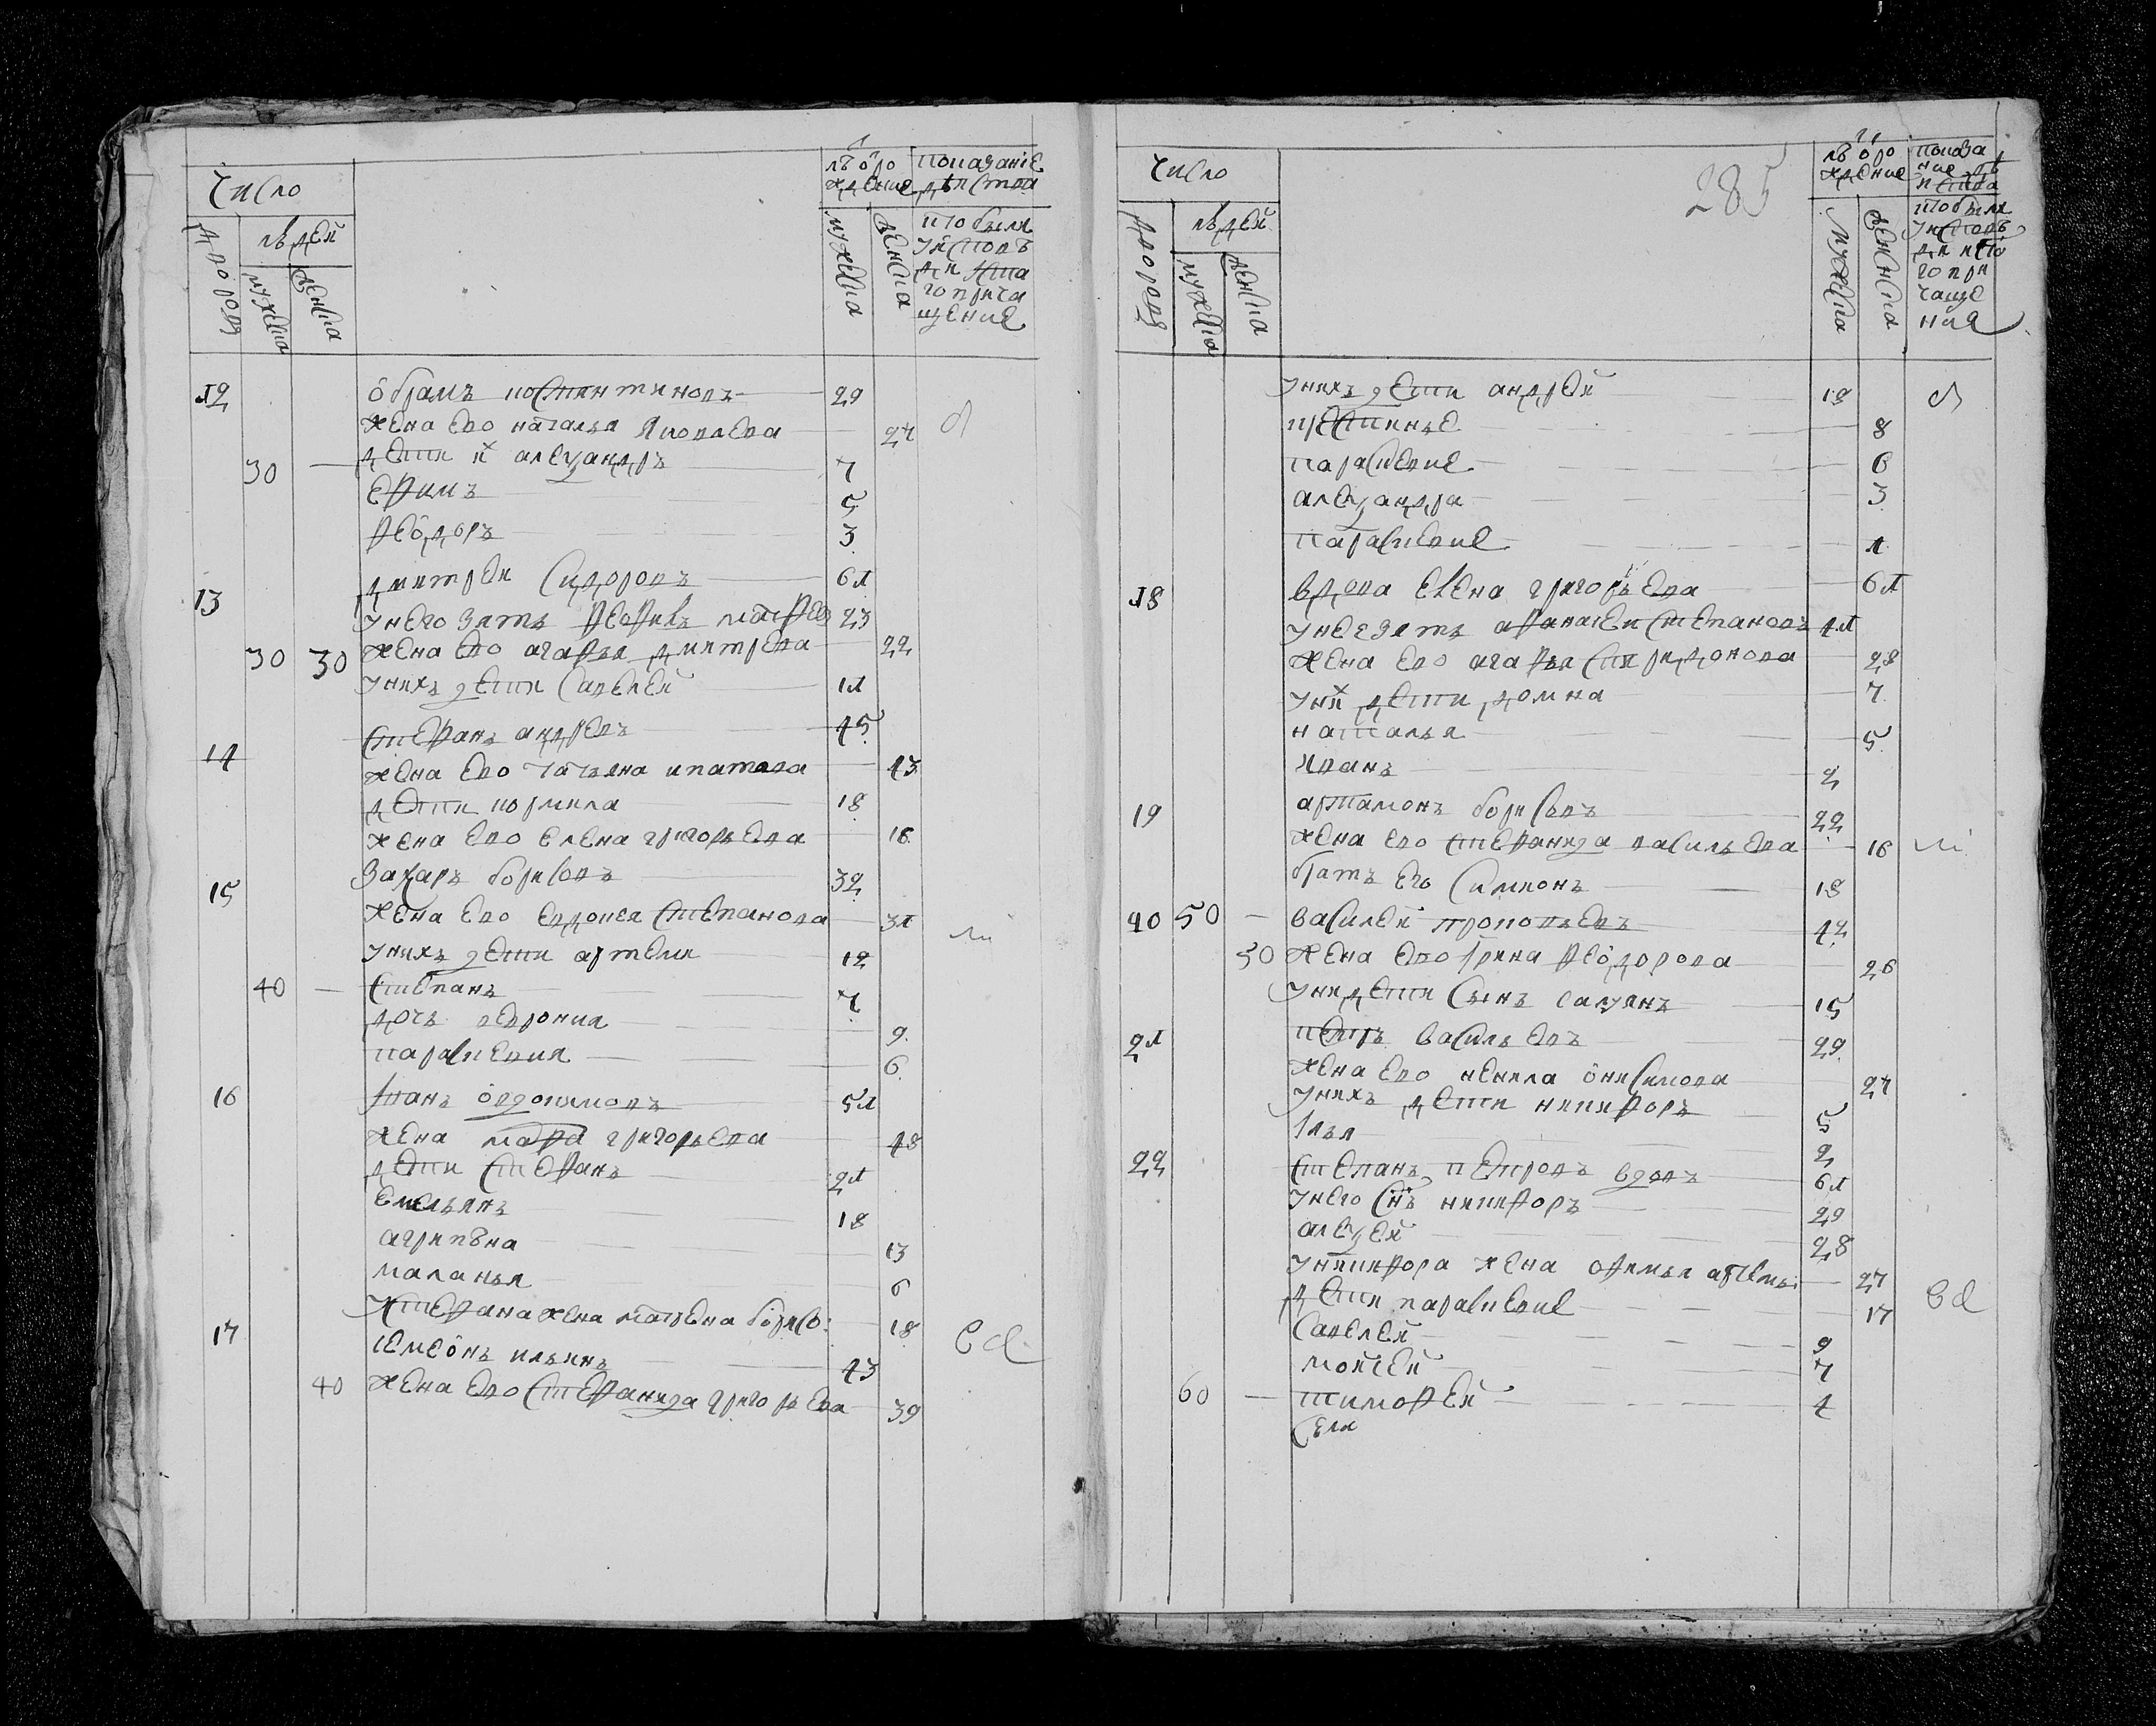 Число
людей
дворовъ
мужеска
женска
лѣ от ро
ждение
мужеска
женска
показание
действа
кто были
у исповѣ
ди и свята
го прича
щение
12 обрамъ костентиновъ 29
жена ево наталья яковлева 27
30 дети их александръ 7
ефимъ 5
федоръ 3
13 дмитрей сидоровъ 61
у него зять 23
30 30 жена ево агафья дмитрева 22
у нихъ дети савелей 11
14 стефанъ андревъ 45
жена ево татьяна ипатова 43
дети кормила 18
жена ево елена григорьева 18
15 захаръ борисовъ 32
жена ево евдокея степанова 31
у нихъ дети артеми 12
40 степанъ 7
дочь феврониа 9
параскевиа 6
16 иванъ евдокимовъ 51
жена марфа григорьева 48
дети стефанъ 21
емельянъ 18
агрипѣна 13
маланья 6
у стефана жена матрена борисо: 18
17 семеонъ ильинъ 43
40 жена ево стефанида григорьева 39
285
Число
людей
дворовъ
мужеска
женска
лѣ от ро
ждение
мужеска
женска
показа
ние дѣ
иства
кто были
у исповѣ
ди и сто
го при
чаще
ния
у нихъ дети андрей 12
крестинье 8
параскевие 6
александра 3
параскевие 1
18 вдова елена григорьева 61
у нее зять афанасеи степановъ 41
жена ево агафья спиридонова 28
у них дети домна 7
наталья 5
иванъ 2
19 артамонъ борисовъ 22
жена ево стефанида васильева 18
братъ его симионъ 18
20 50 василей прокопьевъ 42
50 жена ево ирина феодорова 26
у ни дети сынъ касьянъ 15
21 петръ васильевъ 29
жена ево ненила онисимова 27
у нихъ дети никифоръ 5
илья 2
22 степанъ петровъ вдовъ 61
у него снъ никифоръ 29
алексей 28
у никифора жена офимья артемь: 27
дети параскевие 17
савелей 9
моисей 7
60 тимофей 4
села